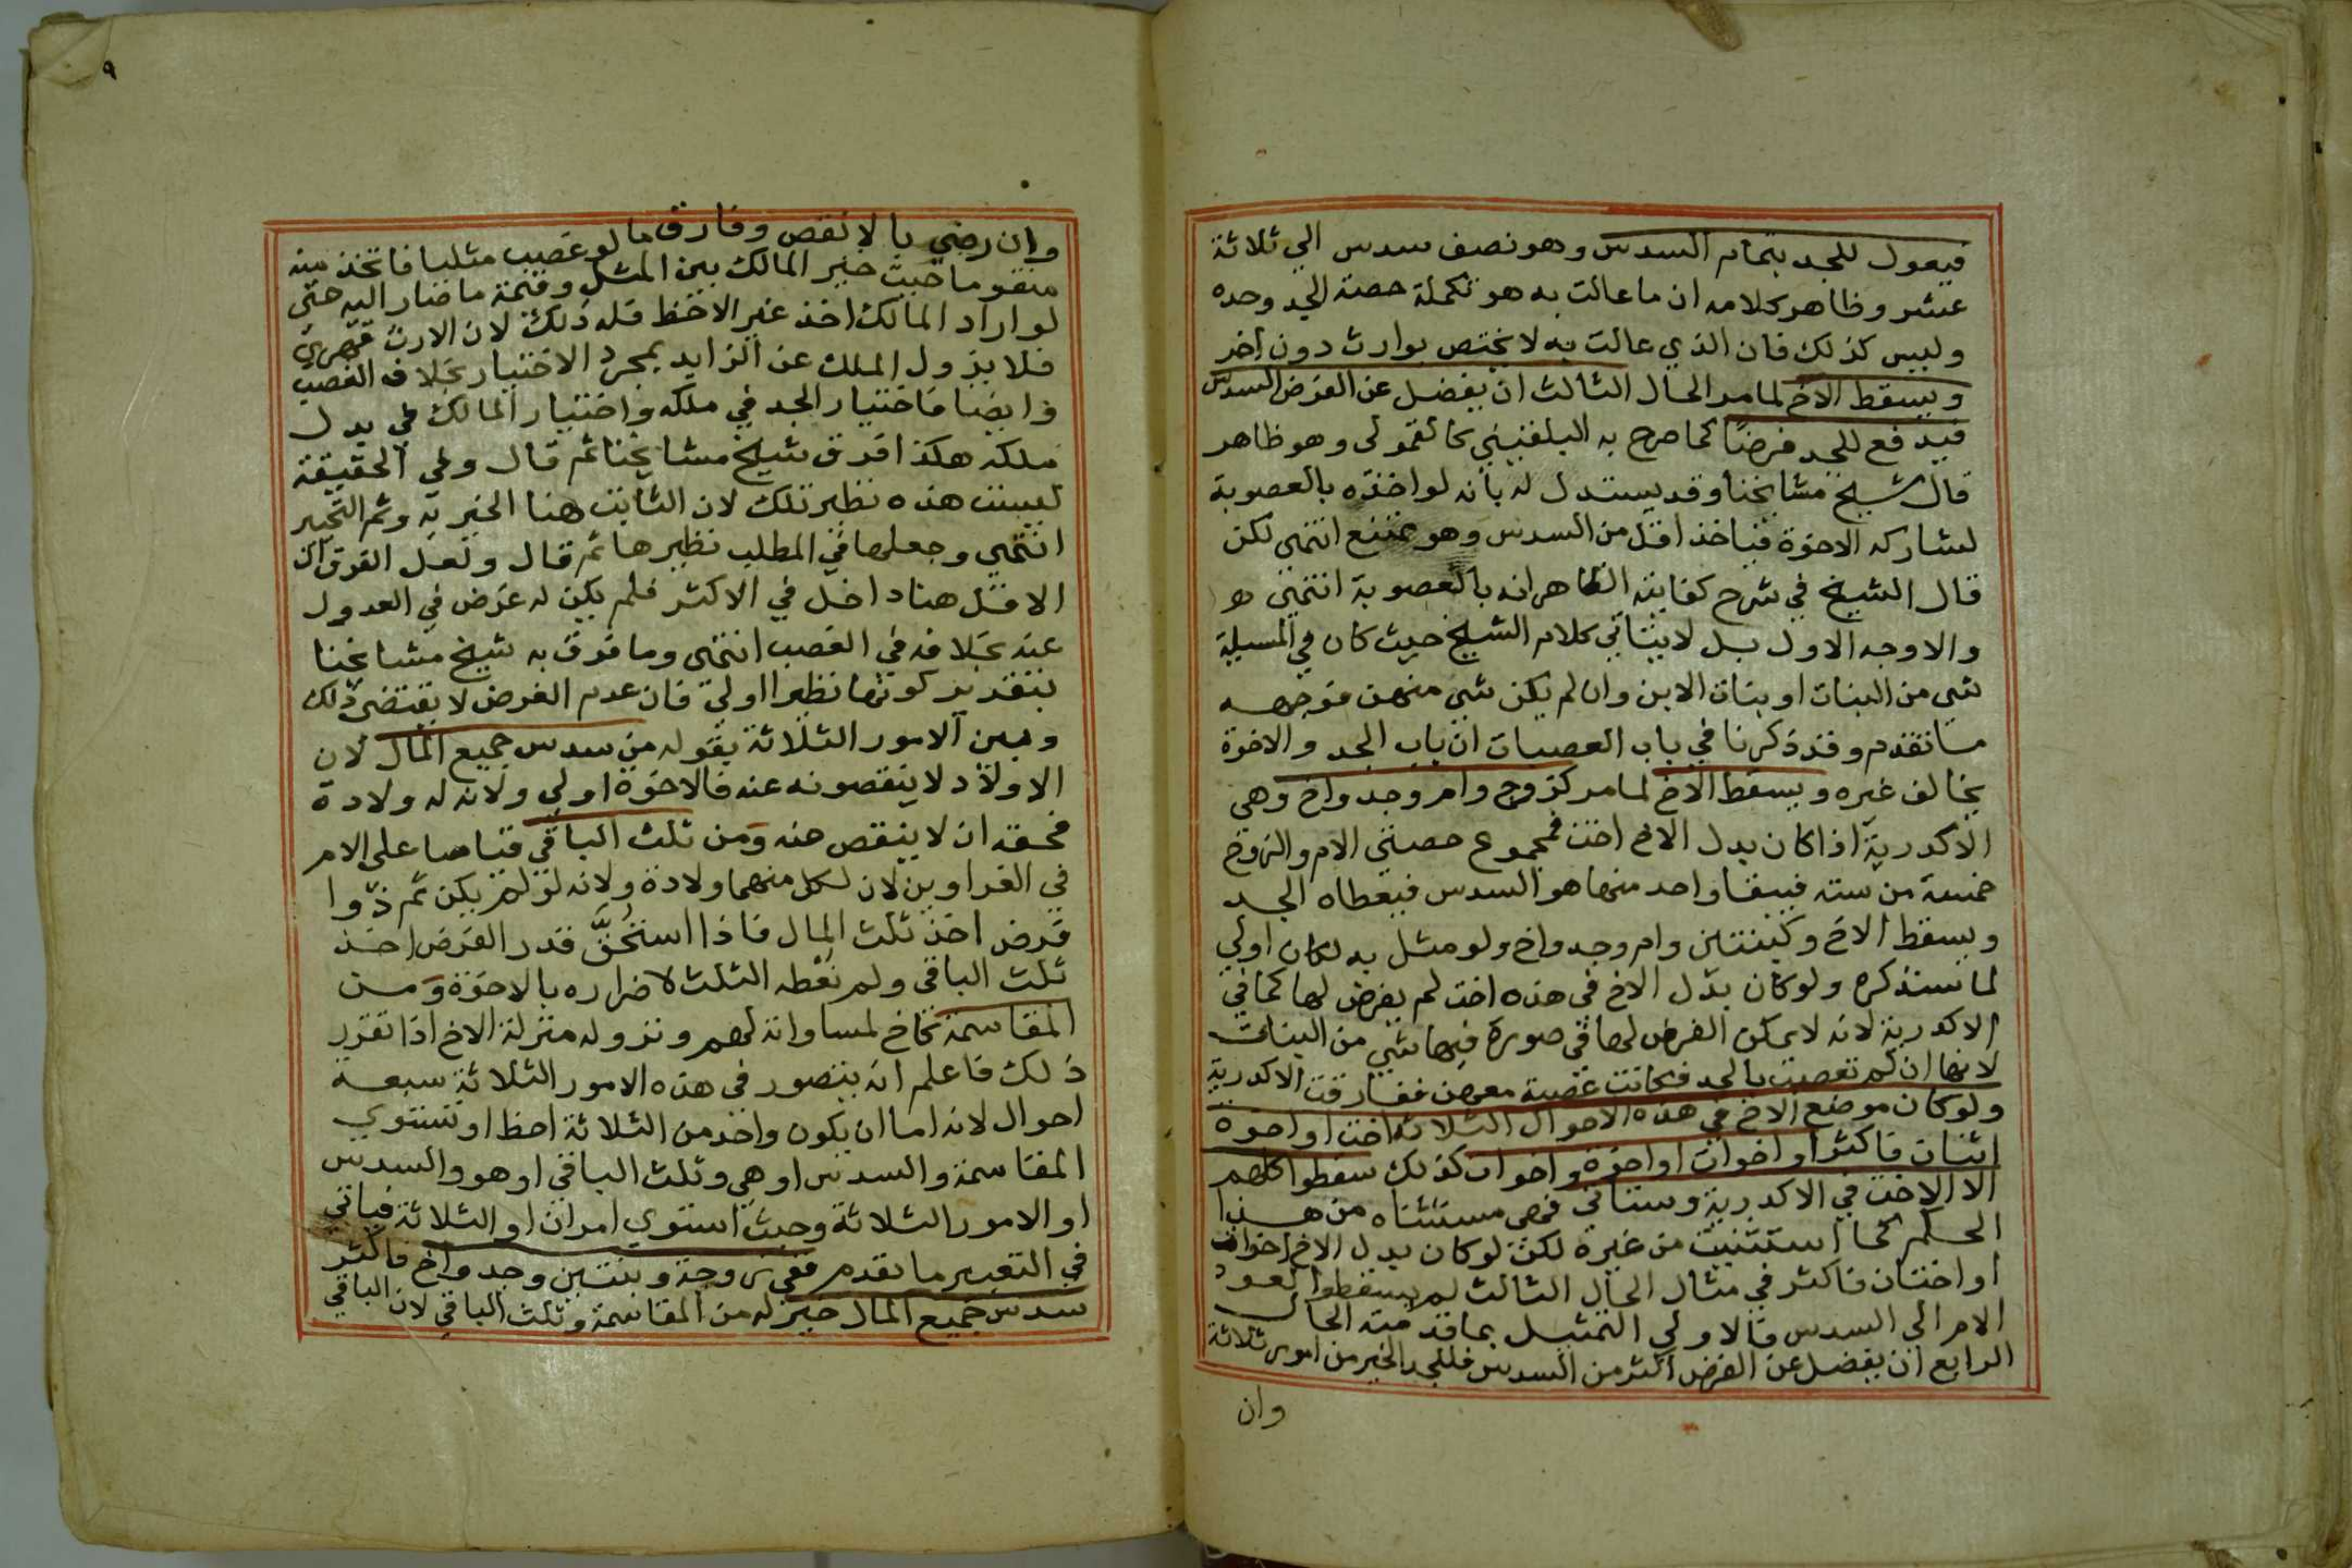 فيعول للجد بتمام السدس وهو نصف سدس الي ثلاثة
عشر وظاهر كلامه ان ما عالت به هو تكملة حصة الجد وحده
وليس كذلك فان الذي عالت به لا يختص بوارث دون اخر
ويسقط الاخ لما مر الحال الثالث ان يفضل عن الفرض السدس
فيدفع للجد فرضا كما صرح به البلقيني كالقمولى وهو ظاهر
قال شيخ مشايخنا وقد يستدل له بانه لو اخذه بالعصوبة
لشاركه الاخوة فياخذ اقل من السدس وهو ممتنع انتهى لكن
قال الشيخ في شرح كفايته الظاهر انه بالعصوبة انتهى هو
والاوجه الاول بل لا يتاتي كلام الشيخ حيث كان في المسيلة
شي من البنات او بنات الابن وان لم يكن شي منهن فوجهه
ما تقدم وقد ذكرنا في باب العصبات ان باب الجد والاخوة
يخالف غيره ويسقط الاخ لما مر كزوج وام وجد واخ وهي
الاكدرية اذا كان بدل الاخ اخت فمجموع حصتي الام والزوج
خمسة من سته فيبقا واحد منها هو السدس فيعطاه الجد
ويسقط الاخ وكبنتين وام وجد واخ ولو مثل به لكان اولي
لما سنذكره ولو كان بدل الاخ في هذه اخت لم يفرض لها كما في
الاكدرية لانه لا يمكن الفرض لها في صورة فيها شي من البنات
لانها ان لم تعصب بالجد فكانت عصبة معهن ففارقت الاكدرية
ولو كان موضع الاخ في هذه الاحوال الثلاثة اخت او اخوة
اثنان فاكثر او اخوات او اخوة واخوات كذلك سقطوا كلهم
الا الاخت في الاكدرية وستاتي فهي مستثناه من هذا
الحكم كما استثنيت من غيره لكن لو كان بدل الاخ اخوات
او اختان فاكثر في مثال الحال الثالث لم يسقطوا لعود
الامر الي السدس فالاولي التمثيل بما قدمته الحال
الرابع ان يفضل عن الفرض اكثر من السدس فللجد الخير من امور ثلاثة
وان
٩
وان رضي بالانقص وفارق ما لو غصب مثليا فاتخذ منه
متقوما حيث خير المالك بين المثل وقيمة ما صار اليه حتى
لو اراد المالك اخذ غير الاحظ فله ذلك لان الارث قهري
فلا يزول الملك عن الزايد بمجرد الاختيار بخلاف الغصب
وايضا فاختيار الجد في ملكه واختيار المالك في بدل
ملكه هكذا افرق شيخ مشايخنا ثم قال وفي الحقيقة
ليست هذه نظير تلك لان الثابت هنا الخيرية وثم التخيير
انتهى وجعلها في المطلب نظيرها ثم قال ولعل الفرق ان
الاقل هنا داخل في الاكثر فلم يكن له غرض في العدول
عنه بخلافه في الغصب انتهى وما فرق به شيخ مشايخنا
بتقدير كونها نظيرا اولي فان عدم الغرض لا يقتضي ذلك
وبين الامور الثلاثة بقوله من سدس جميع المال لان
الاولاد لا ينقصونه عنه فالاخوة اولي ولانه له ولادة
فحقه ان لا ينقص عنه ومن ثلث الباقي قياسا على الام
في الغراوين لان لكل منهما ولادة ولانه لو لم يكن ثم ذوا
فرض اخذ ثلث المال فاذا استحق قدر الفرض اخذ
ثلث الباقي ولم نعطه الثلث لاضراره بالاخوة ومن
المقاسمة كاخ لمساواته لهم ونزوله منزلة الاخ اذا تقرر
ذلك فاعلم انه يتصور في هذه الامور الثلاثة سبعة
احوال لانه اما ان يكون واحد من الثلاثة احظ او تستوي
المقاسمة والسدس او هي وثلث الباقي او هو والسدس
او الامور الثلاثة وحيث استوي امران او الثلاثة فياتي
في التعبير ما تقدم ففي زوجة وبنتين وجد واخ فاكثر
سدس جميع المال خير له من المقاسمة وثلث الباقي لان الباقي